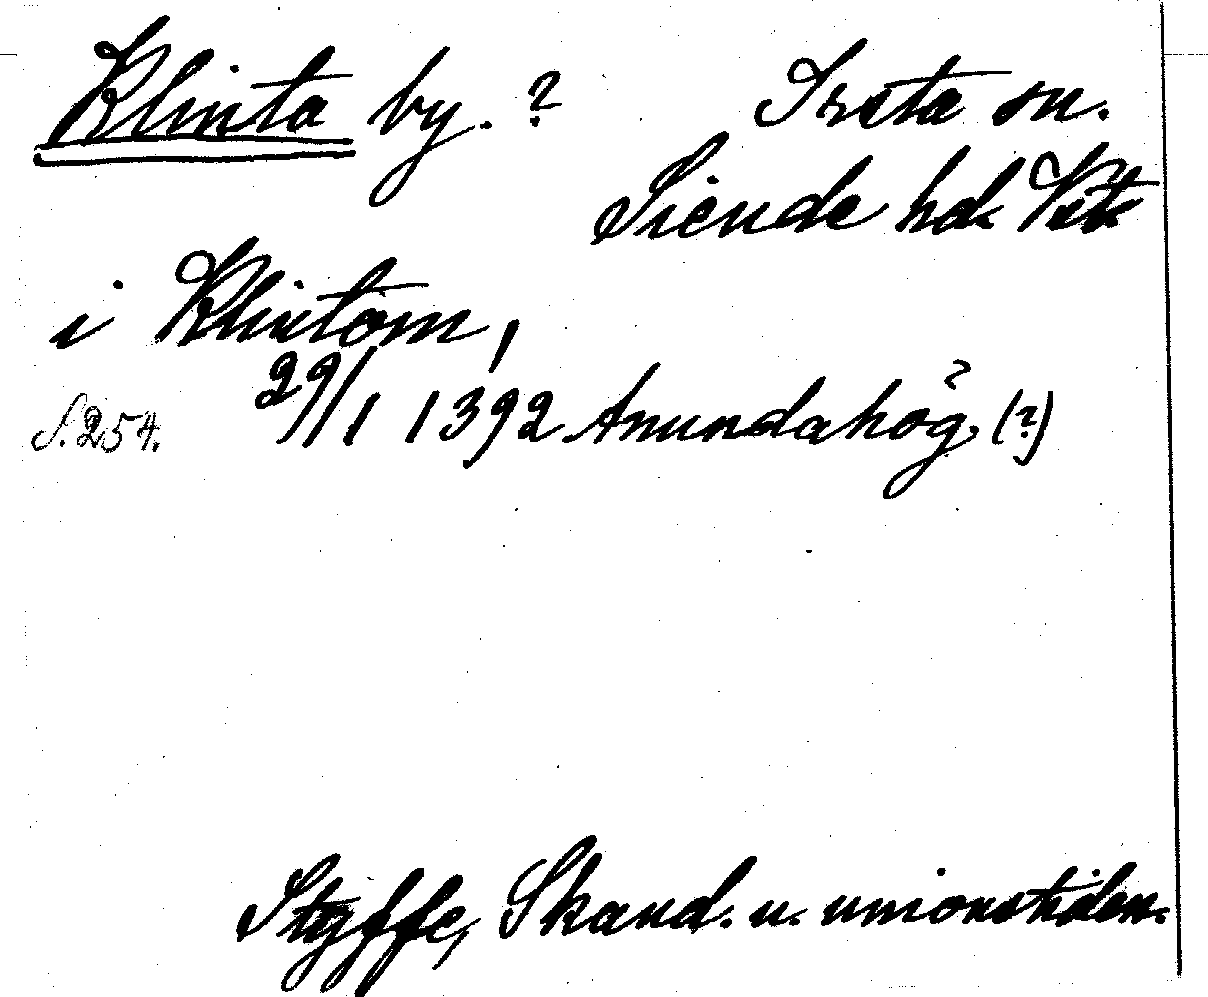 Klinta by. ? Irsta sn.
Siende hd Vstm
i Klintom,
S. 254. 29/1 1392 Anundahög (?)
Styffe, Skand. u. unionstiden.